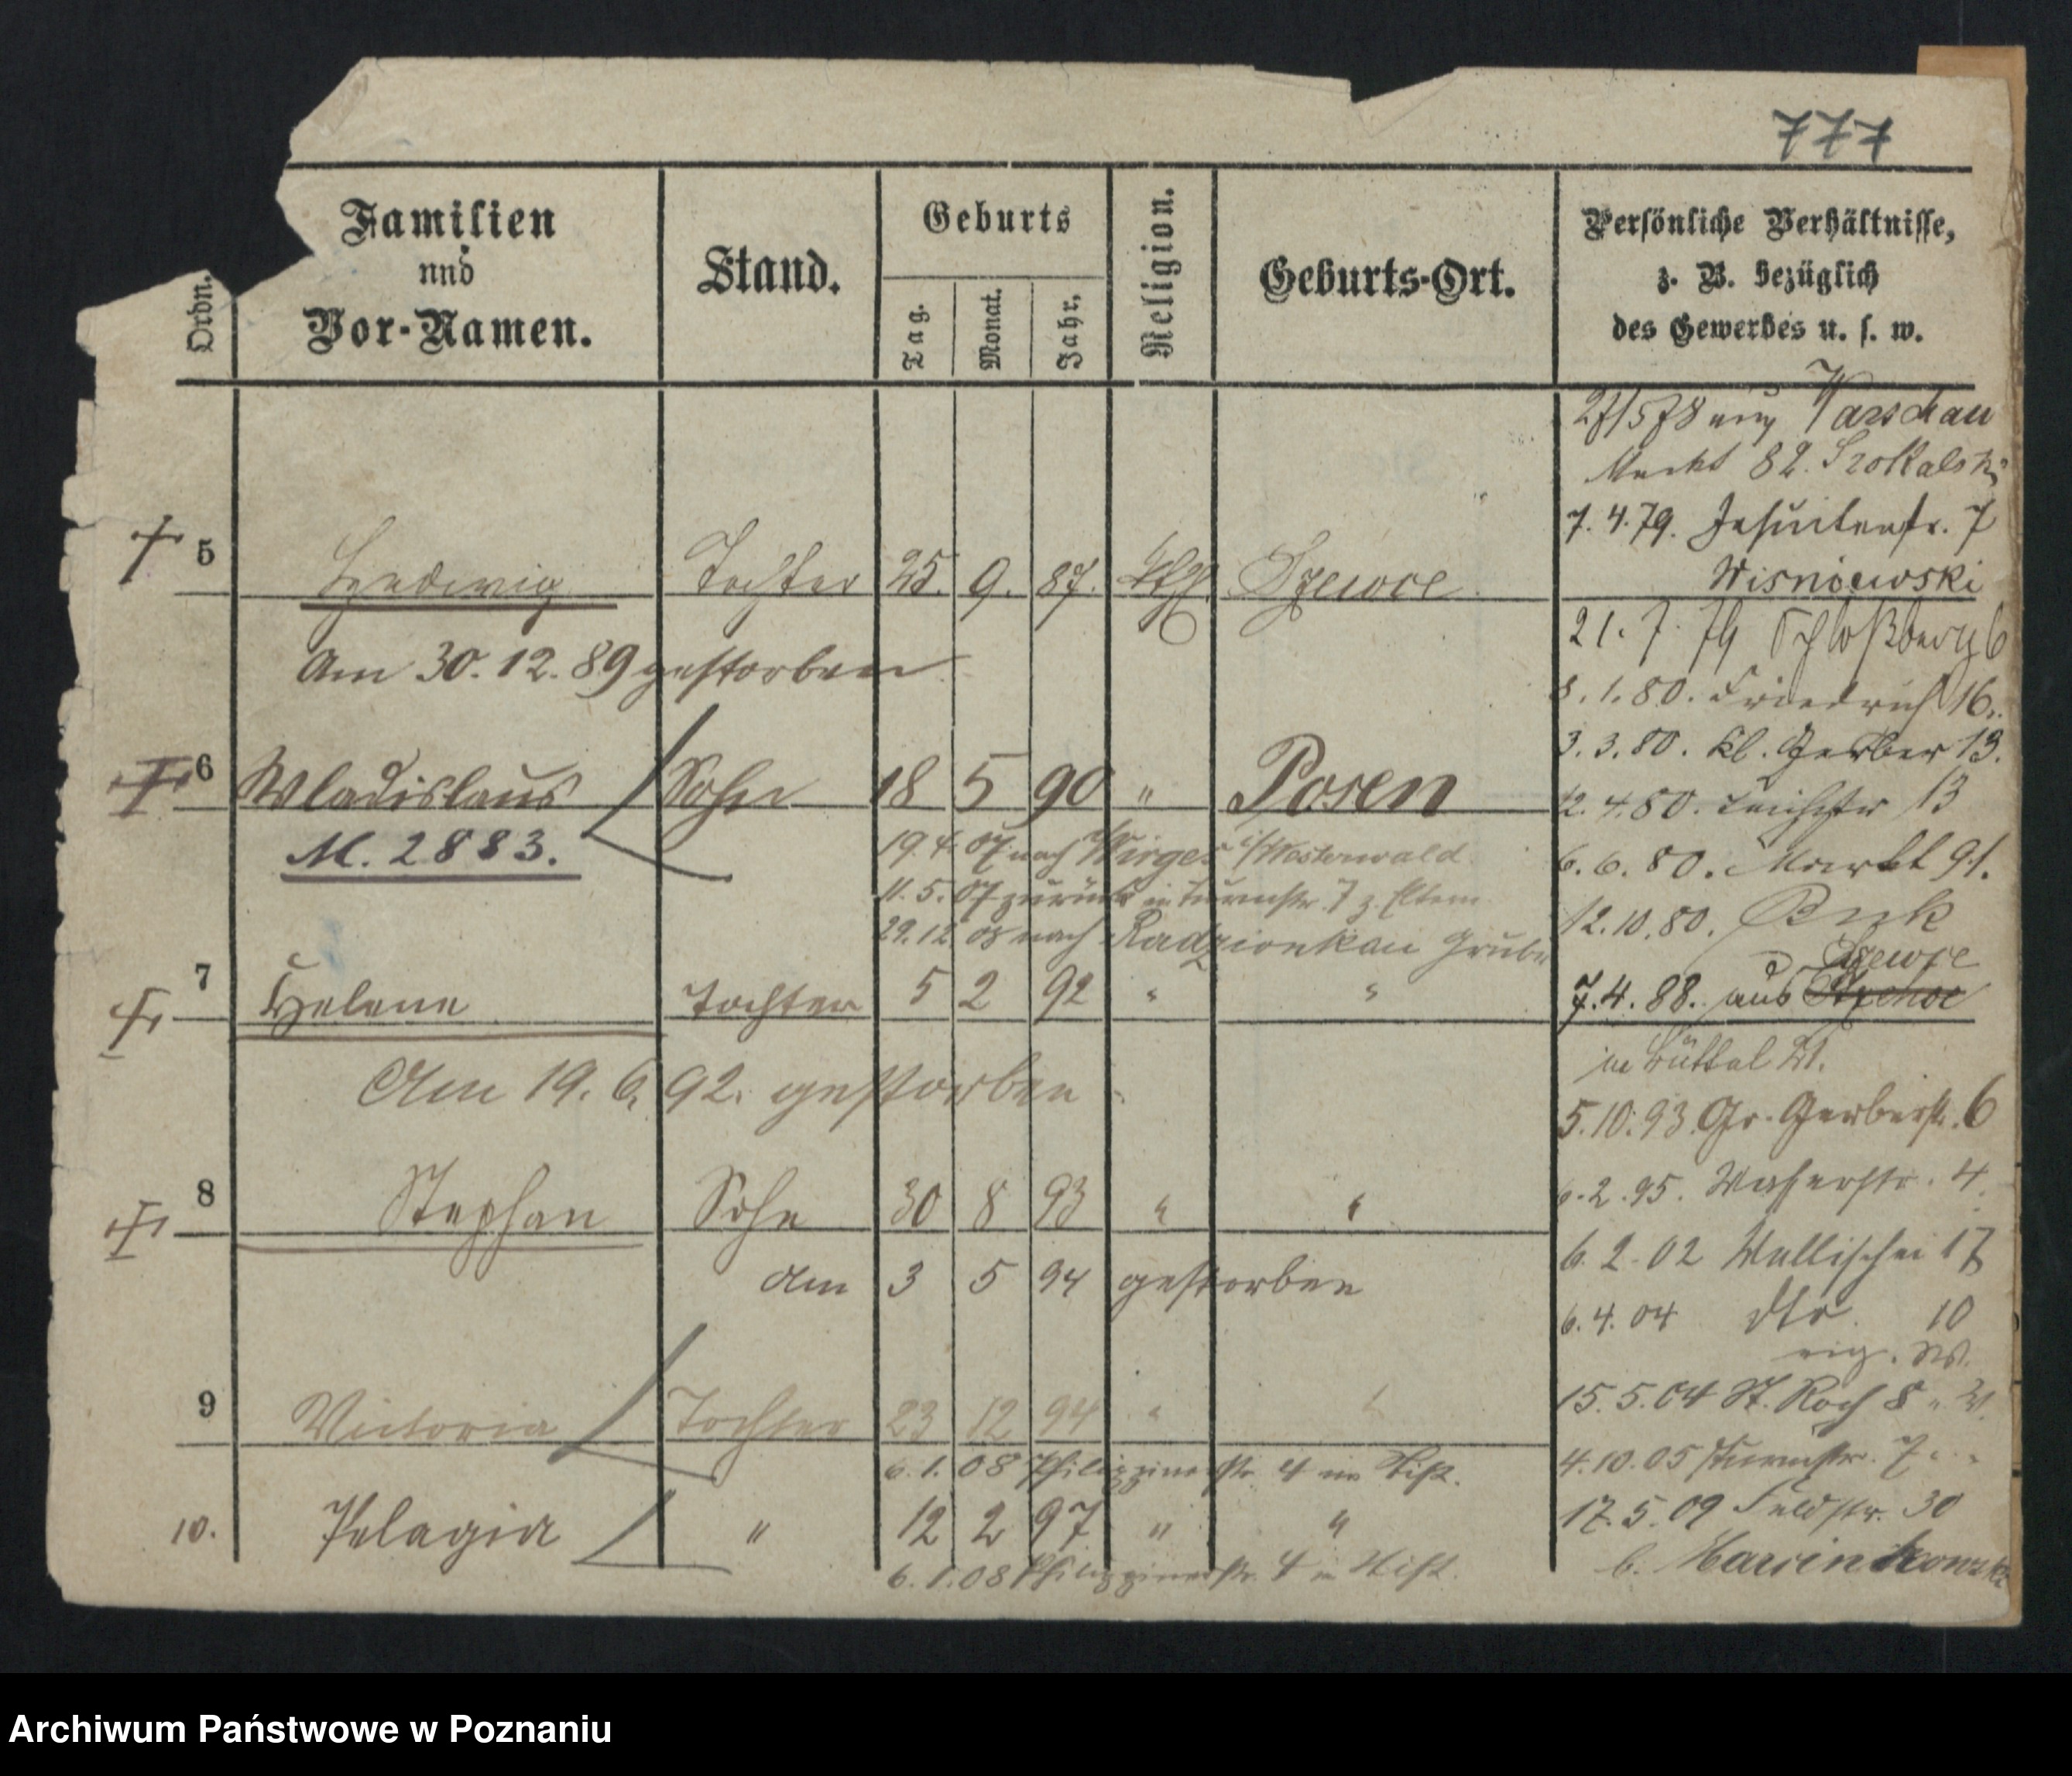 777
Ordn.
Familien
und
Vor-Namen.
Stand.
Geburts
Tag.
Monat.
Jahr.
Religion.
Geburts-Ort.
Persönliche Verhältnisse,
z. B. bezüglich
des Gewerbes u. s. w.
5 Hedwig Tochter 25. 9. 87. kth. Szewce
Am 30. 12. 89 gestorben
6 Wladislaus Sohn 18 5 90 " Posen
M. 2883.
19. 4. 07 nach Wirges i/Westerwald.
11. 5. 07 zurück in Turmstr. 7 z. Eltern
29. 12. 08 nach Radzionkau Grube
7 Helene Tochter 5 2 92 " "
Am 19. 6. 92. gestorben
8 Stephan Sohn 30 8 93 " "
am 3 5 94 gestorben
9 Victoria Tochter 23 12 94 " "
6. 1. 08 Philippinerstr. 4 im Stift.
10. Pelagia " 12 2 97 " "
6. 1. 08 Philippinerstr. 4 im Stift.
27/5 78 aus Warschau
Markt 82.
7. 4. 79. Jesuitenstr. 7
Wisniewski
21. 7. 79 Schloßberg 6
8. 1. 80. Friedrich 16.
3. 3. 80. kl. Gerber 13.
12. 4. 80. Teichstr 13
6. 6. 80. Markt 91.
12. 10. 80. Buk
Szewce
7. 4. 88. aus
in
5. 10. 93 Gr. Gerberstr. 6
6. 2. 95. Wasserstr. 4.
6. 2. 02 Wallischei 17
6. 4. 04 dto. 10
eig. W.
15. 5. 04 St. Roch 8 " W.
4. 10. 05 Turmstr. 7 " "
17. 5. 09 Feldstr. 30
b. Marcinkowski
Archiwum Państwowe w Poznaniu